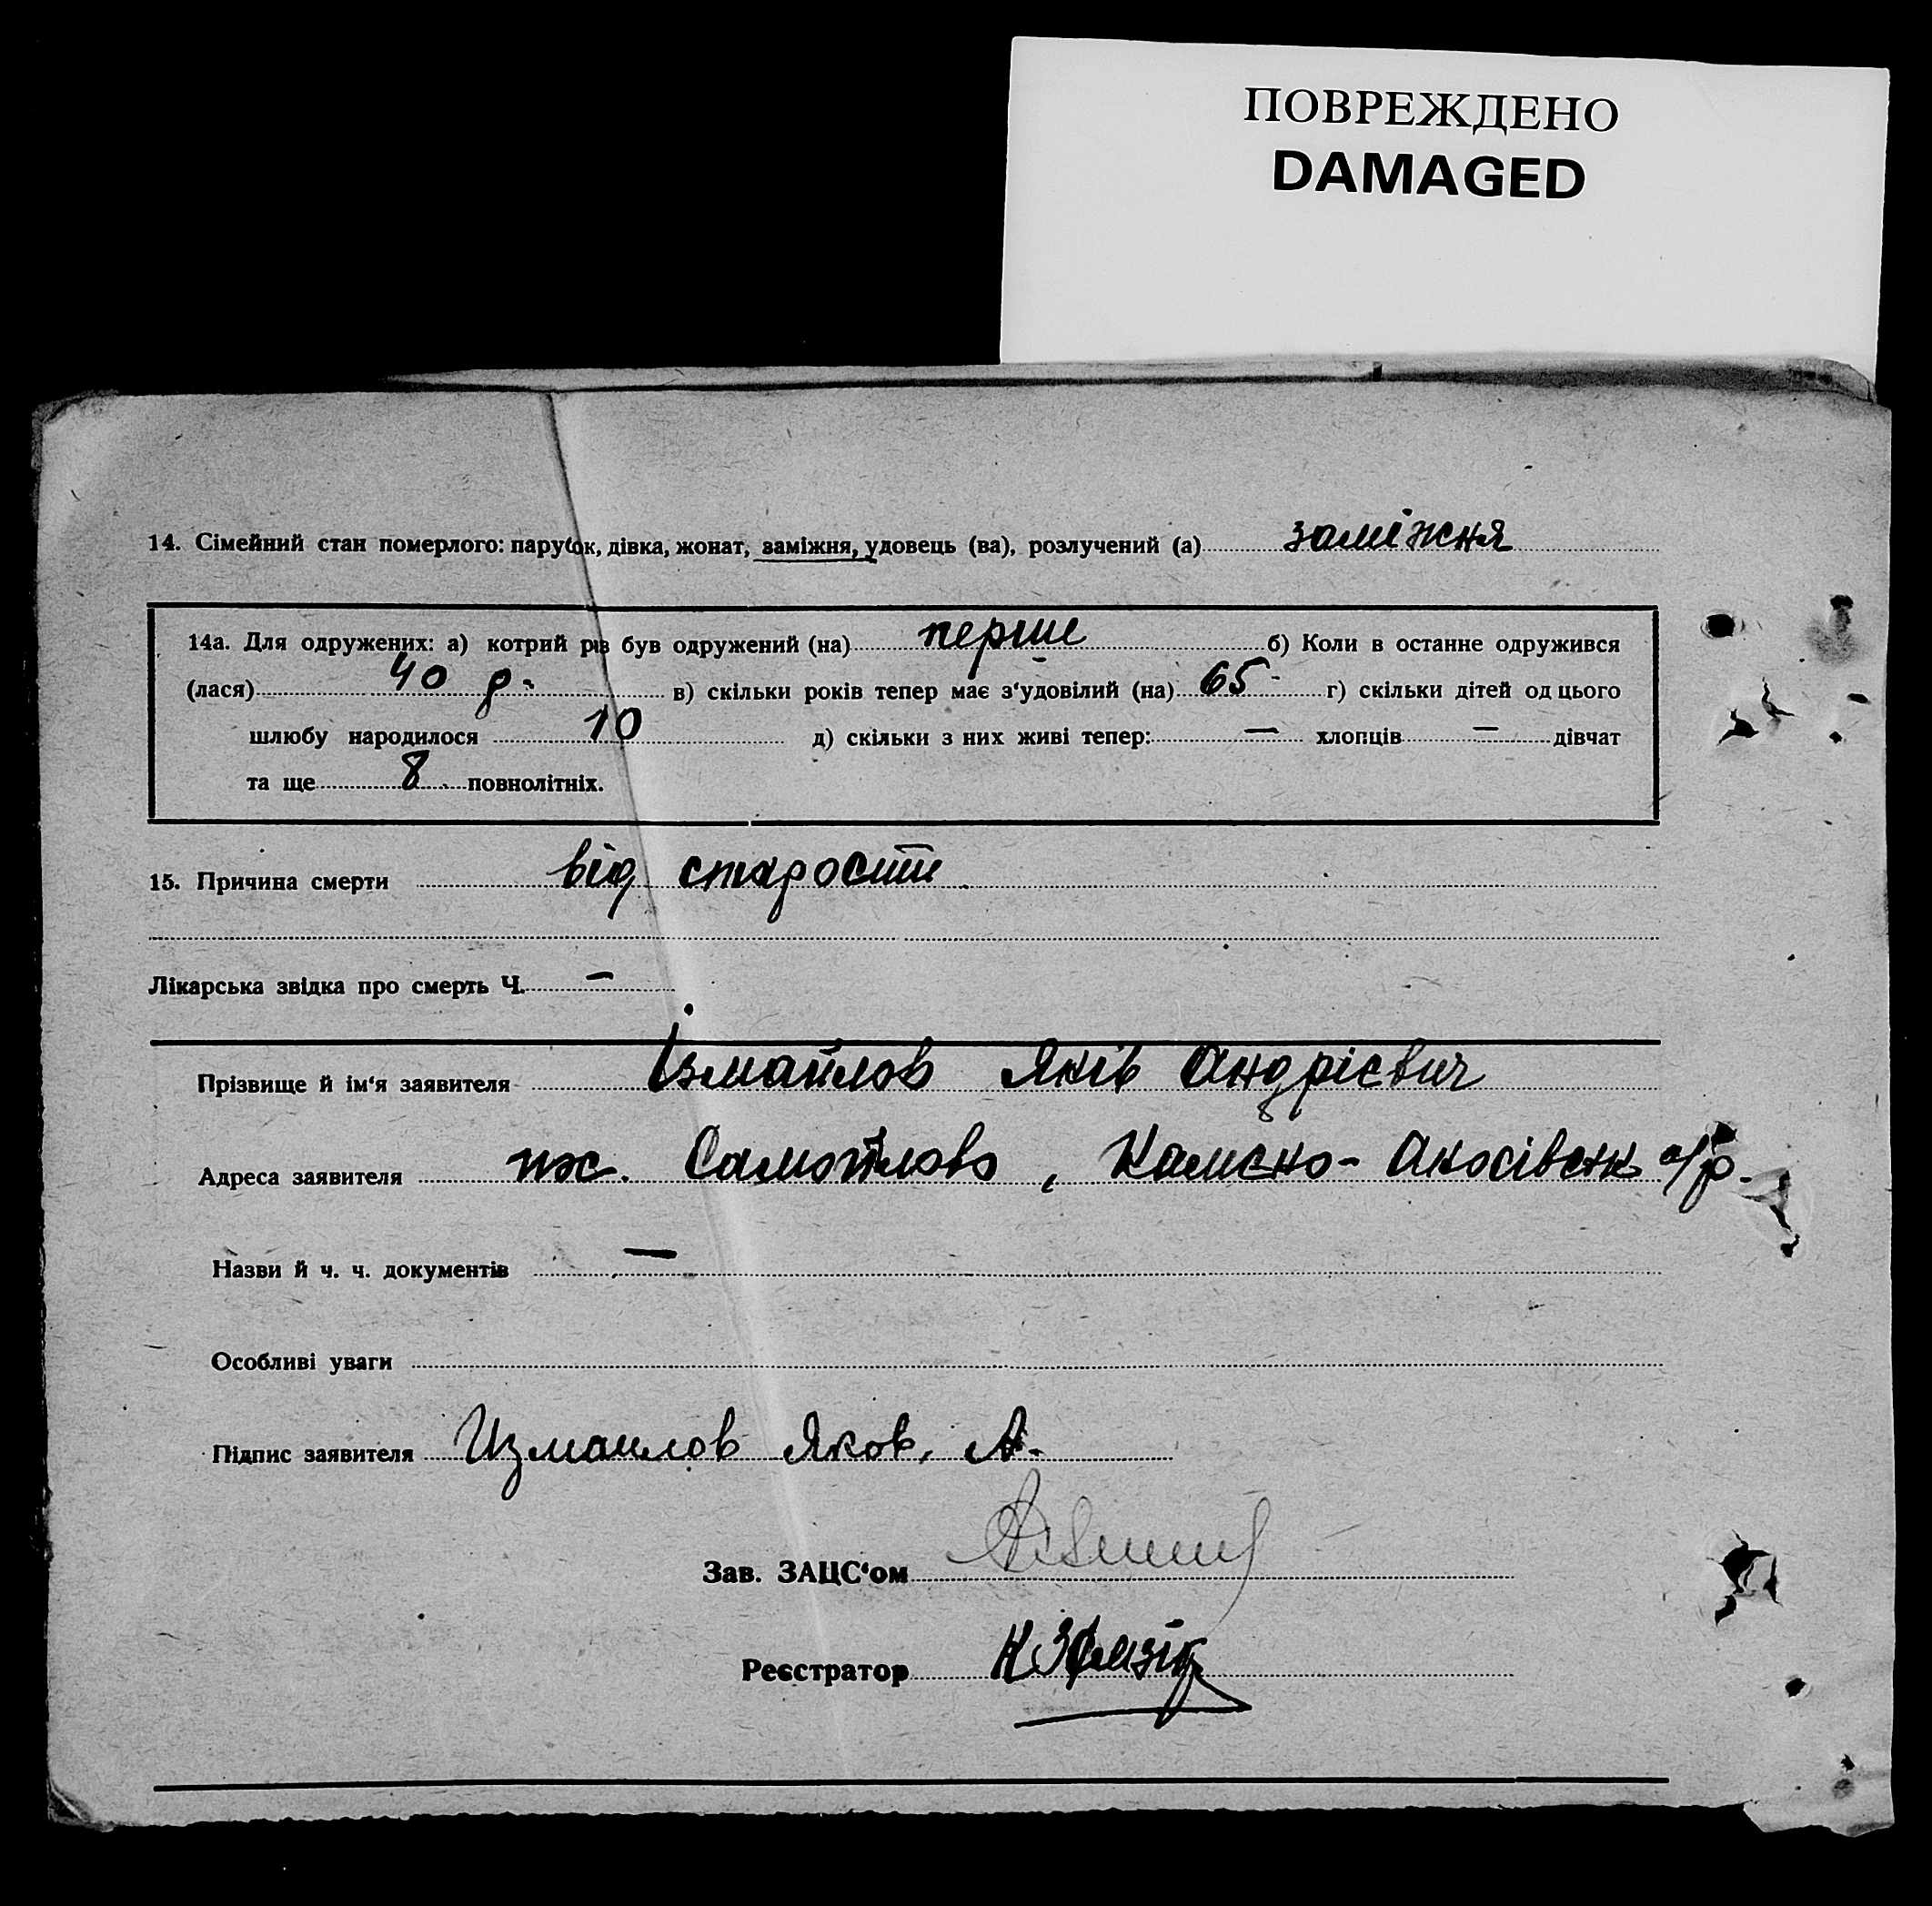 ПОВРЕЖДЕНО
DAMAGED
14. Сімейний стан померлого: парубок, дівка, жонат, заміжня, удовець (ва), розлучений (а) заміжня
14а. Для одружених: а) котрий рів був одружений (на) перше б) Коли в останне одружився
(лася) 40 р. в) скільки років тепер має з‘удовілий (на) 65 г) скільки дітей од цього
шлюбу народилося 10 д) скільки з них живі тепер: — хлопців — дівчат
та ще 8 повнолітніх.
15. Причина смерти від старости
Лікарська звідка про смерть Ч. —
Прізвище й ім‘я заявителя Ізмайлов Яків Андрієвич
Адреса заявителя , Камєно-
Назви й ч. ч. документів —
Особливі уваги
Підпис заявителя Измаилов Яков. А.
Зав. ЗАЦС‘ом
Реєстратор